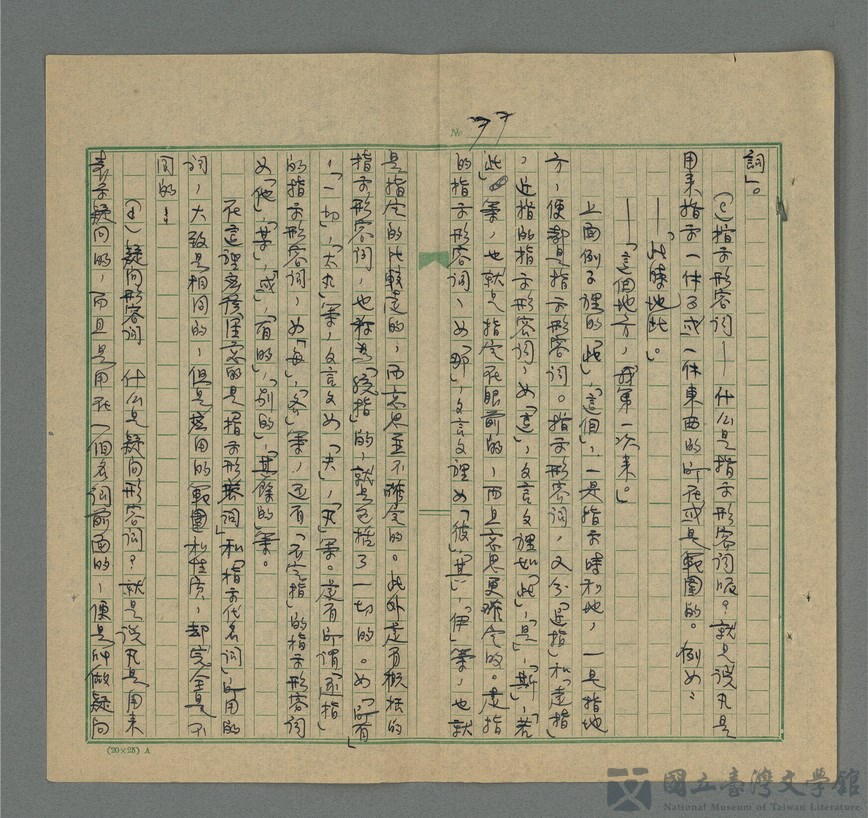 No 77
詞」。
(c)指示形容詞——什么是指示形容詞呢?就是说凡是
用来指示一件子或一件東西的所在或是範圍的。例如:
——「此時地此」。
——「這個地方,我第一次来。」
上面例子裡的「此」「這個」,一是指示時和地,一是指地
方,便都是指示形容詞。指示形容詞,又分「近指」和「遠指」
,近指的指示形容詞,如「這」,文言文裡如「此」,「是」,「斯」,「若
此」等,也就是指定在眼前的,而且意思更確定的。遠指
的指示形容詞,如「那」,文言文裡如「彼」,「其」,「伊」等,也就
是指定的比較遠的,而意思並不確定的。此外還有概括的
指示形容詞,也称為「統指」的,就是包括了一切的。如「所有」
,「一切」,「大凡」等,文言文如「夫」,「凡」等。還有所謂「逐指」
的指示形容詞,如「每」,「各」等,还有「不定指」的指示形容詞
如「他」,「某」,「或」,「有的」,「別的」,「其餘的」等。
在這裡必須留意的是「指示形容詞」和「指示代名詞」所用的
詞,大致是相同的,但是應用的範圍和性质,却完全是不
同的!
(d)疑问形容詞 什么是疑向形容詞?就是说凡是用来
表示疑问的,而且是用在一個名詞前面的,便是叫做疑问
(20×25) A
國立臺灣文學館
National Museum of Taiwan Literature